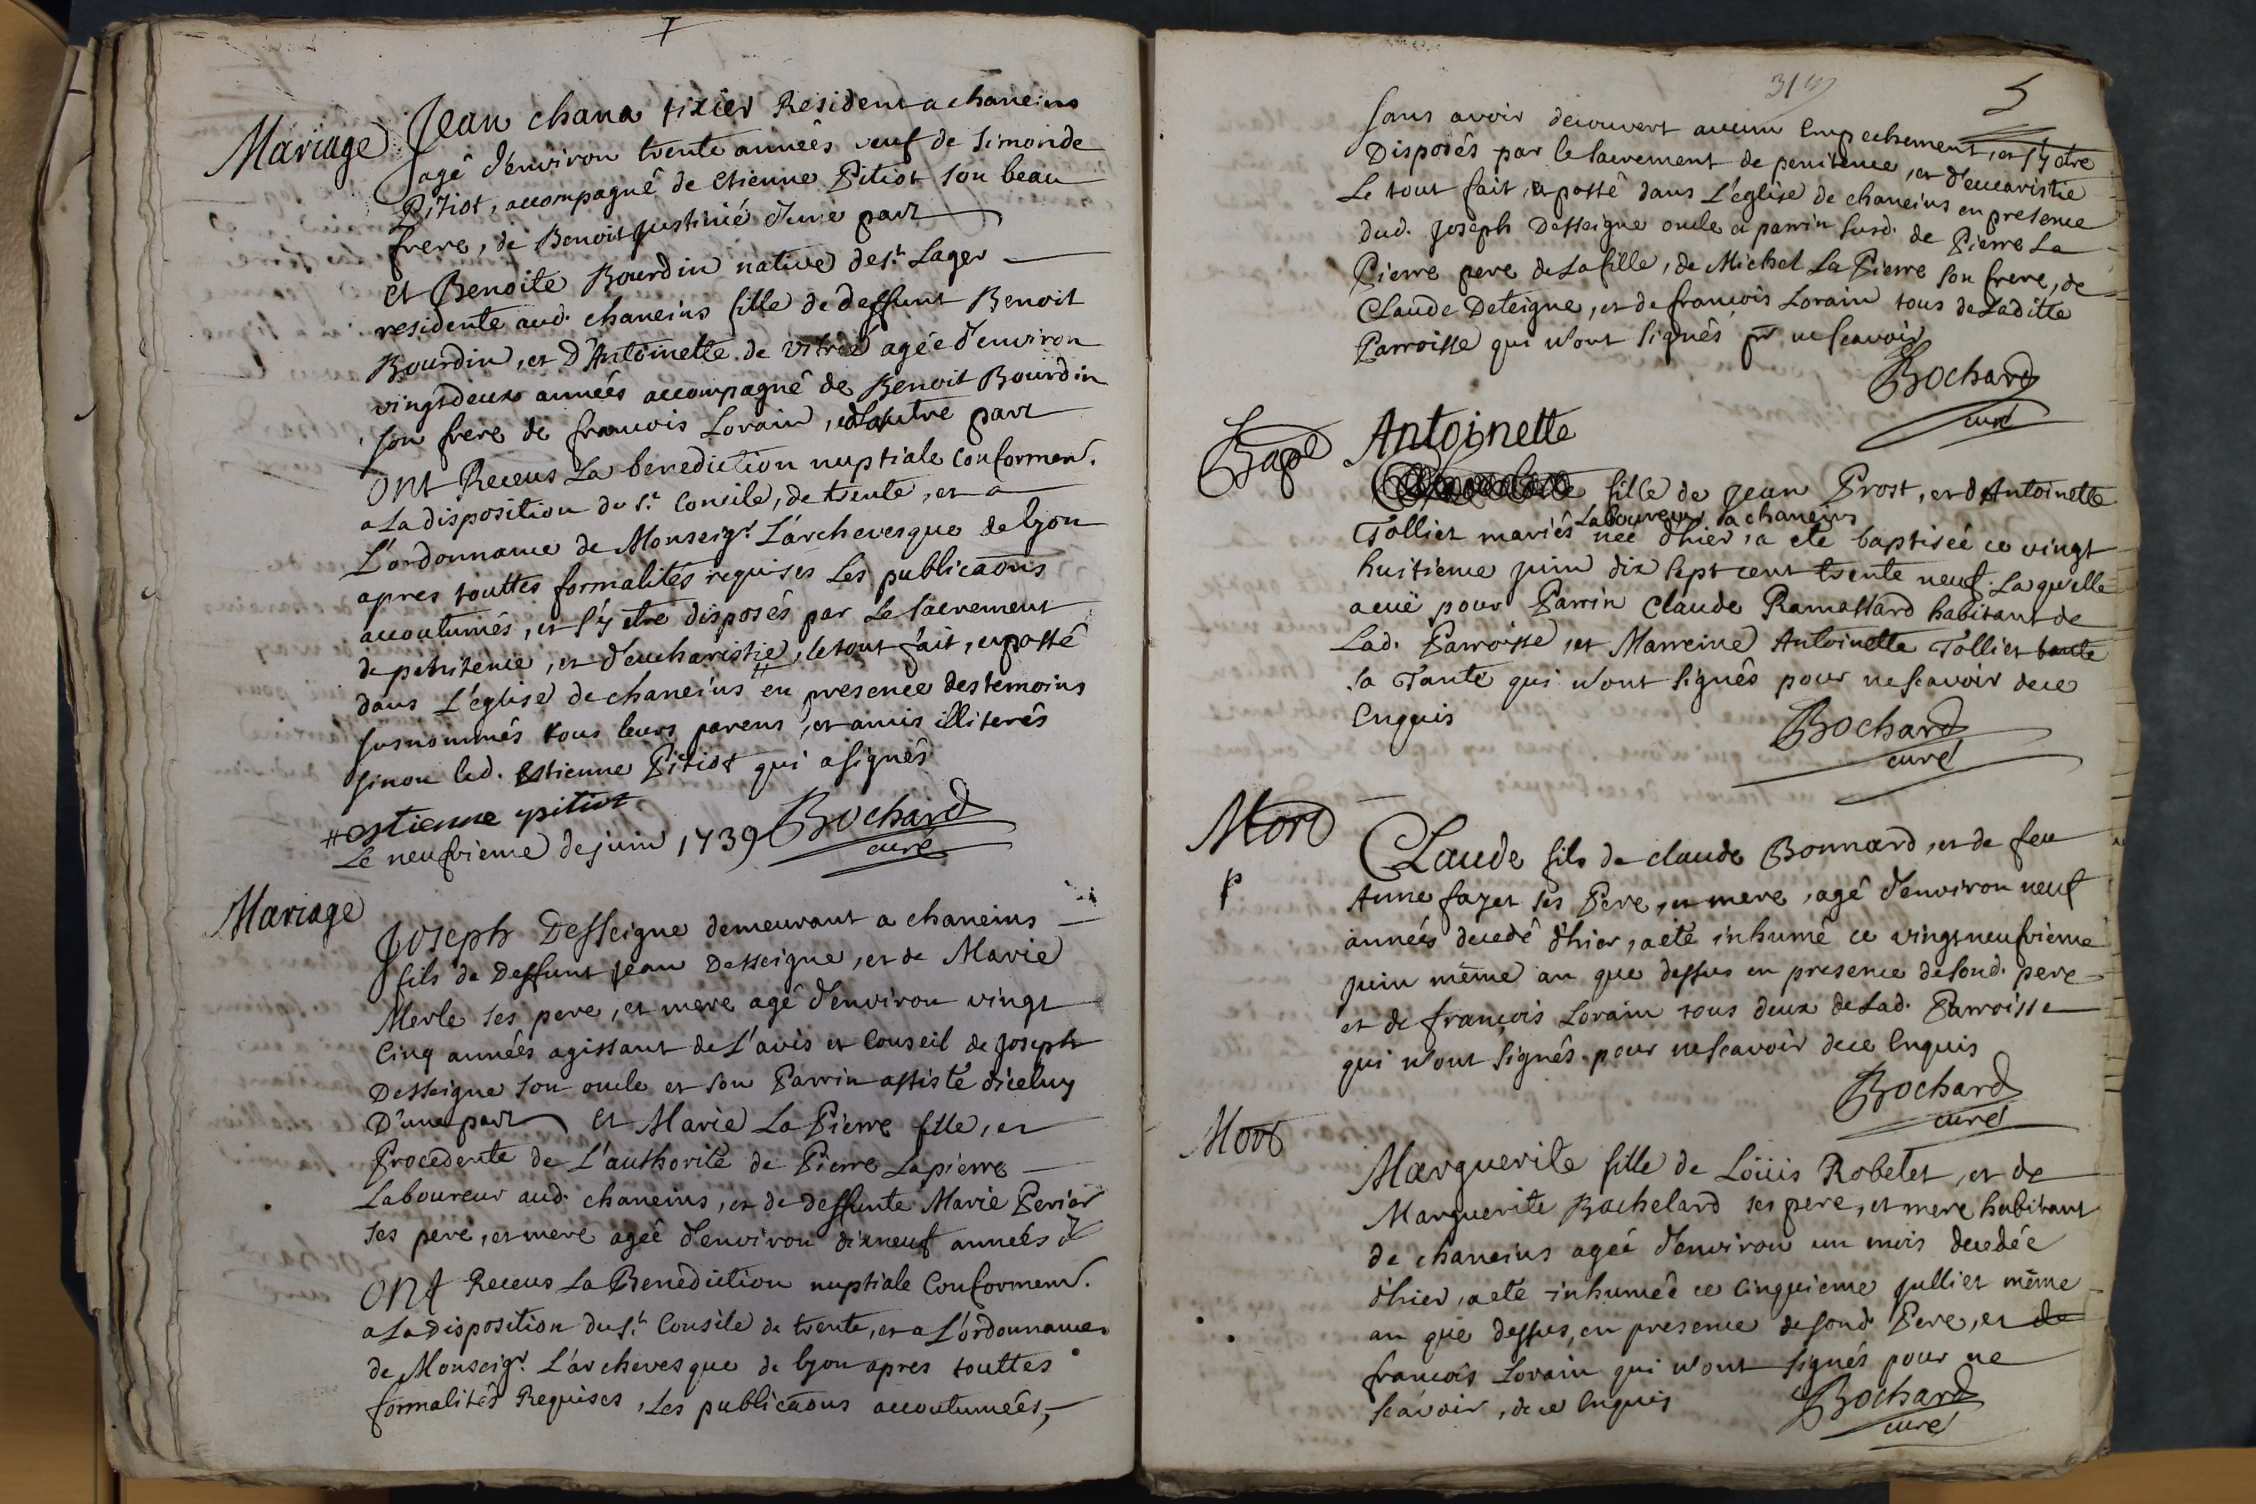 Mariage
Jean chana tixier Resident a chaneins
agé d'environ trente années veuf de Simonde
Pitiot, accompagné de Etienne Pitiot son beau
frere, de Benoit justinié d'une part
et Benoite Bourdin native de st. Lager
residente aud. chaneins fille de deffunt Benoit
Bourdin, et D'Antoinette de agée d'environ
vingtdeux années accompagné de Benoit Bourdin
son frere de francois Lorain, d'autre part
ont Receus La benediction nuptiale conformem.
a La disposition du st. Concile, de trente, et a
L'ordonnance de Monseigr. L'archevesque de lyon
apres touttes formalités requises Les publicaons
accoutumés, et s'y etre disposés par Le Sacrement
de penitence, et d'eucharistie, # le tout fait, et passé
dans L'église de chaneins en presence des temoins
susnommés tous leurs parens, et amis illiterés
sinon led. Estienne Pitiot qui a signés
estienne pitiot
# Le neufvieme de juin 1739 Bochard
curé
Mariage
Joseph Desseigne demeurant a chaneins
fils de Deffunt jean Desseigne, et de Marie
Merle ses pere, et mere agé d'environ vingt
Cinq années agissant de L'avis et Conseil de joseph
Desseigne son oncle et son Parrin assisté d'iceluy
D'une part Et Marie La Pierre fille, et
Procedente de L'authorité de Pierre Lapierre
Laboureur aud. chaneins, et de deffunte Marie Perier
ses pere, et mere agée d'environ dixneuf années
ont Receus La Benediction nuptiale Conformem.
a La Disposition du st. Consile de trente, et a L'ordonnance
de Monseigr. L'archevesque de lyon apres touttes
formalités Requises, Les publicaons accoutumées,
5
sans avoir decouvert aucun Empechement, et s'y etre
Disposés par le sacrement de penitence, et d'eucaristie
Le tout fait, et passé dans L'église de chaneins en presence
dud. joseph Desseigne oncle et parrin susd. de Pierre La
Pierre pere de La fille, de Michel La Pierre son frere, de
Claude Deteigne, et de francois Lorain tous de Laditte
Parroisse qui n'ont signés pr ne scavoir
Bochard
curé
Bapt
Antoinette
fille de Jean Prost, et d'Antoinette
Laboureur a chaneins
Tolliet mariés née d'hier, a eté baptisée ce vingt
huitieme juin dix sept cent trente neuf. Laquelle
a euë pour Parrin Claude Ramassard habitant de
Lad. Parroisse, et Marreine Antoinette Tolliet tante
sa Tante qui n'ont signés pour ne scavoir de ce
Enquis
Bochard
curé
Mort
p
Claude fils de claude Bonnard, et de feu
Anne fayet ses Pere, et mere, agé d'environ neuf
années decedé d'hier, a eté inhumé ce vingtneufvieme
juin même an que dessus en presence de sond. pere
et de françois Lorain tous deux de Lad. Parroisse
qui n'ont signés pour ne scavoir de ce Enquis
Bochard
curé
Mort
Marguerite fille de Loüis Robelet, et de
Marguerite Bachelard ses pere, et mere habitant
de chaneins agée d'environ un mois decedée
d'hier, a eté inhumée ce cinquieme julliet même
an que dessus, en presence de sond. Pere, et de
francois Lorain qui n'ont signés pour ne
scavoir, de ce Enquis
Bochard
curé